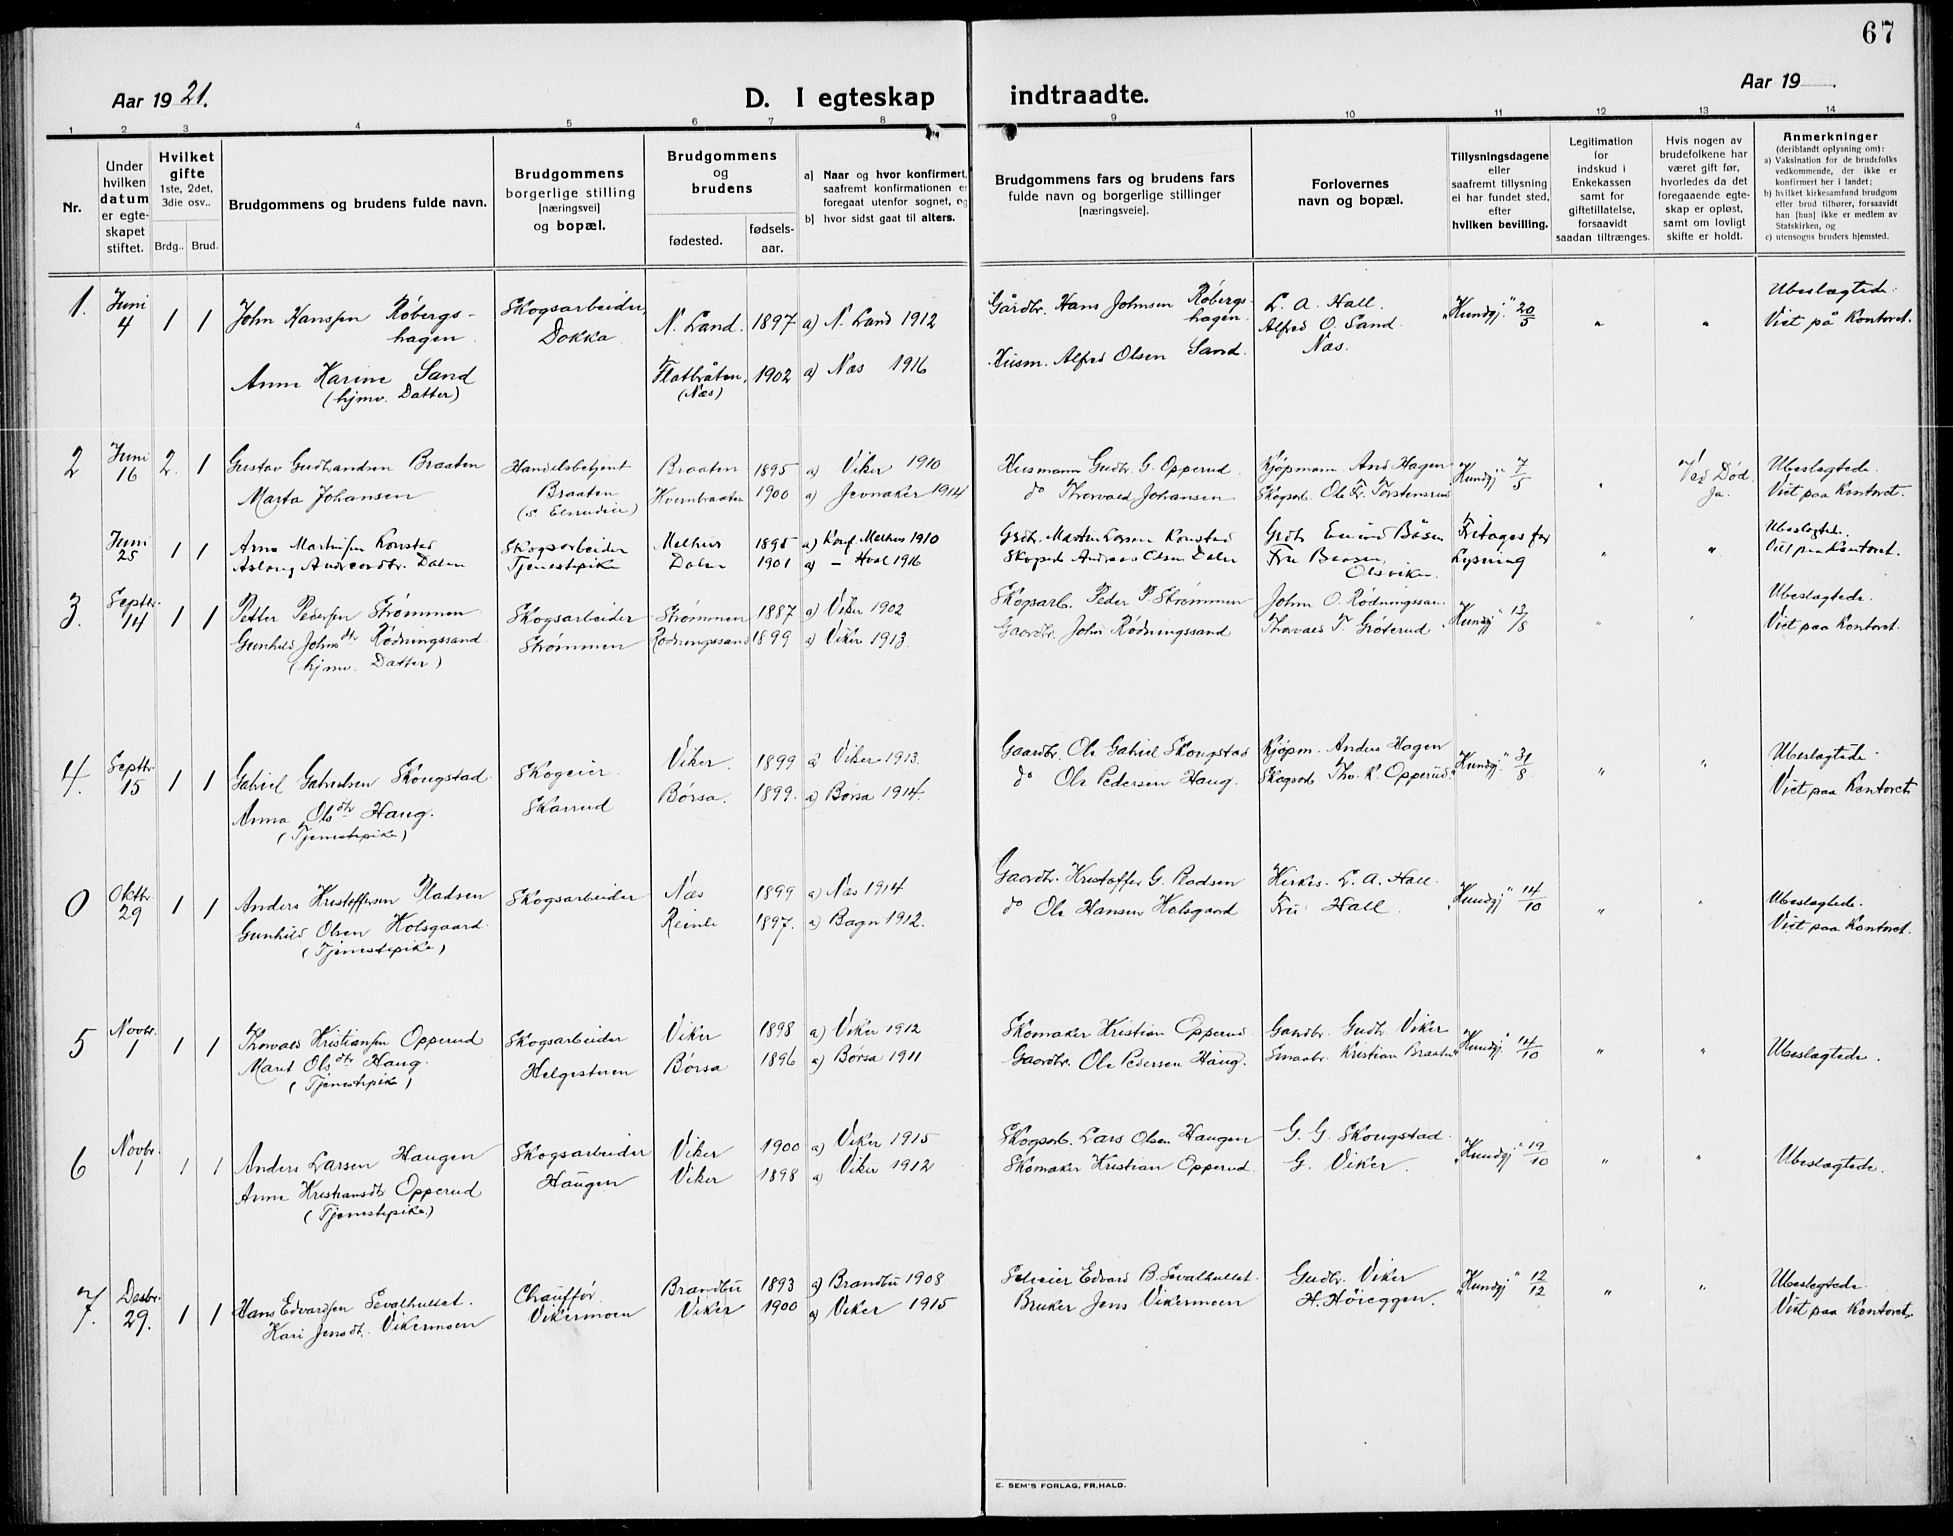 67
Aar 1921.
D. I egteskap indtraadte.
Aar 19 .
1 2 3 4 5 6 7 8 9 10 11 12 13 14
Nr.
Under hvilken datum er egteskapet stiftet.
Hvilket gifte
1ste, 2det, 3die osv..
Brdg.. Brud.
Brudgommens og brudens fulde navn.
Brudgommens borgerlige stilling [næringsvei] og bopæl.
Brudgommens og brudens
fødested.
fødsels-aar.
a) Naar og hvor konfirmert,
saafremt konfirmationen er
foregaat utenfor sognet, og
b) hvor sidst gaat til alters.
Brudgommens fars og brudens fars
fulde navn og borgerlige stillinger
[næringsveie].
Forlovernes
navn og bopæl.
Tillysningsdagene
eller
saafremt tillysning
ei har fundet sted,
efter
hvilken bevilling.
Legitimation
for
indskud i
Enkekassen
samt for
giftetillatelse,
forsaavidt
saadan tiltrænges.
Hvis nogen av
brudefolkene har
været gift før,
hvorledes da det
foregaaende egte-
skap er opløst,
samt om lovligt
skifte er holdt.
Anmerkninger
(deriblandt oplysning om):
a) Vaksination for de brudefolks
vedkommende, der ikke er
konfirmert her i landet;
b) hvilket kirkesamfund brudgom
eller brud tilhører, forsaavidt
han [hun] ikke er medlem av
Statskirken, og
c) utensogns bruders hjemsted.
1. Juni 4 1 1 John Hanssen Røbergshagen Skogsarbeider, Dokka N. Land. 1897 a) N. Land 1912 Gårdbr. Hans Johnsen Røbergshagen. L. A. Hall. "Kundgj." 20/5 " " Ubeslægtede.
Anne Karine Sand (hjmv. Datter) Flatbråten, (Næs) 1902 a) Næs 1916 Husm. Alfred Olsen Sand. Alfred O. Sand. Næs. Viet på Kontoret.
2 Juni 16 2. 1 Gustav Gudbrandsen Braaten Handelsbetjent Braaten Braaten 1895 a) Viker 1910 Husmann Gudbr. G. Opperud. Kjøpmann And. Hagen "Kundgj" 7/5 " Ved Død. Ja. Ubeslagtede.
Marta Johansen Kvernbraaten 1900 a) Jevnaker 1914 do Thorvald Johansen Skogsarb. Ole Fr. Torstensrud Viet paa Kontoret.
Juni 25 1 1 Arne Martinsen Konstad Skogsarbeider Melhus 1895 a) Konf. Melhus 1910 Grdbr. Martin Larsen Konstad Grdbr. Båsen Fritages for Lysning " " Ubeslagtede.
Aslaug Andreasdtr. Dalen Tjenestepike Dalen 1901 a) – Hval 1916 Skogsarb. Andreas Olsen Dalen Fru Viet paa Kontoret.
3. Septbr. 14 1 1 Petter Pedersen Strømmen Skogsarbeider Strømmen Strømmen 1887 a) Viker 1902 Skogsarb. Peder P. Strømmen John O. Rødningssand "Kundgj" 13/8 " " Ubeslagtede.
Gunhild Johnsdtr Rødningssand (hjmv. Datter) Rødningssand 1899 a) Viker 1913. Gaardbr. John Rødningssand Thorvald T. Grøterud Viet paa Kontoret.
4. Septbr. 15 1 1 Gabriel Gabrielsen Skougstad Skogeier. Skarrud Viker. 1899 a) Viker 1913. Gaardbr. Ole Gabriel Skougstad Kjøpm. Anders Hagen "Kundgj." 31/8 " " Ubeslagtede.
Anna Olsdtr Haug. (Tjenestepike) Børsa. 1899. a) Børsa 1914. do Ole Pedersen Haug. Skogsarb. Tho. K. Opperud Viet paa Kontoret
0 Oktbr. 29 1 1 Anders Kristoffersen Pladsen Skogsarbeider Næs 1899 a) Næs 1914 Gaardbr. Kristoffer G. Pladsen Kirkes. L. A. Hall. "Kundgj" 14/10 " " Ubeslagtede.
Gunhild Olsen Holsgaard. (Tjenestepike) Reinli 1897. a) Bagn 1912. do Ole Hansen Holsgaard Fru Hall. Viet paa Kontoret.
5 Novbr. 1 1 1 Thorvald Kristiansen Opperud Skogsarbeider Helgesturen Viker 1898 a) Viker 1912 Skomaker Kristian Opperud Gaardbr. Gudbr. Viker "Kundgj." 14/10 " " Ubeslagtede.
Marit Olsdtr Haug. (Tjenestepike) Børsa 1896 a) Børsa 1911 Gaardbr. Ole Pedersen Haug. Smaabr. Kristian Braaten
6 Novbr. 1 1 1 Anders Larsen Haugen Skogsarbeider Haugen Viker 1900 a) Viker 1915 Skogsarb. Lars Olsen Haugen G. G. Skougstad. "Kundgj" 19/10 " " Ubeslagtede.
Anne Kristiansdtr Opperud (Tjenestepike.) Viker 1898 a) Viker 1912 Skomaker Kristian Opperud. G. Viker.
7. Desbr. 29. 1 1 Hans Edvardsen Sevalhullet. Chauffør. Vikermoen Brandbu 1893 a) Brandbu 1908 Selveier Edvard B. Sevalhullet. Gudbr. Viker "Kundgj" 12/12 " " Ubeslagtede.
Kari Jensdt. Vikermoen Viker 1900 a) Viker 1915 Bruker Jens Vikermoen H. Høieggen. Viet paa Kontoret.
E. SEM'S FORLAG, FR.HALD.